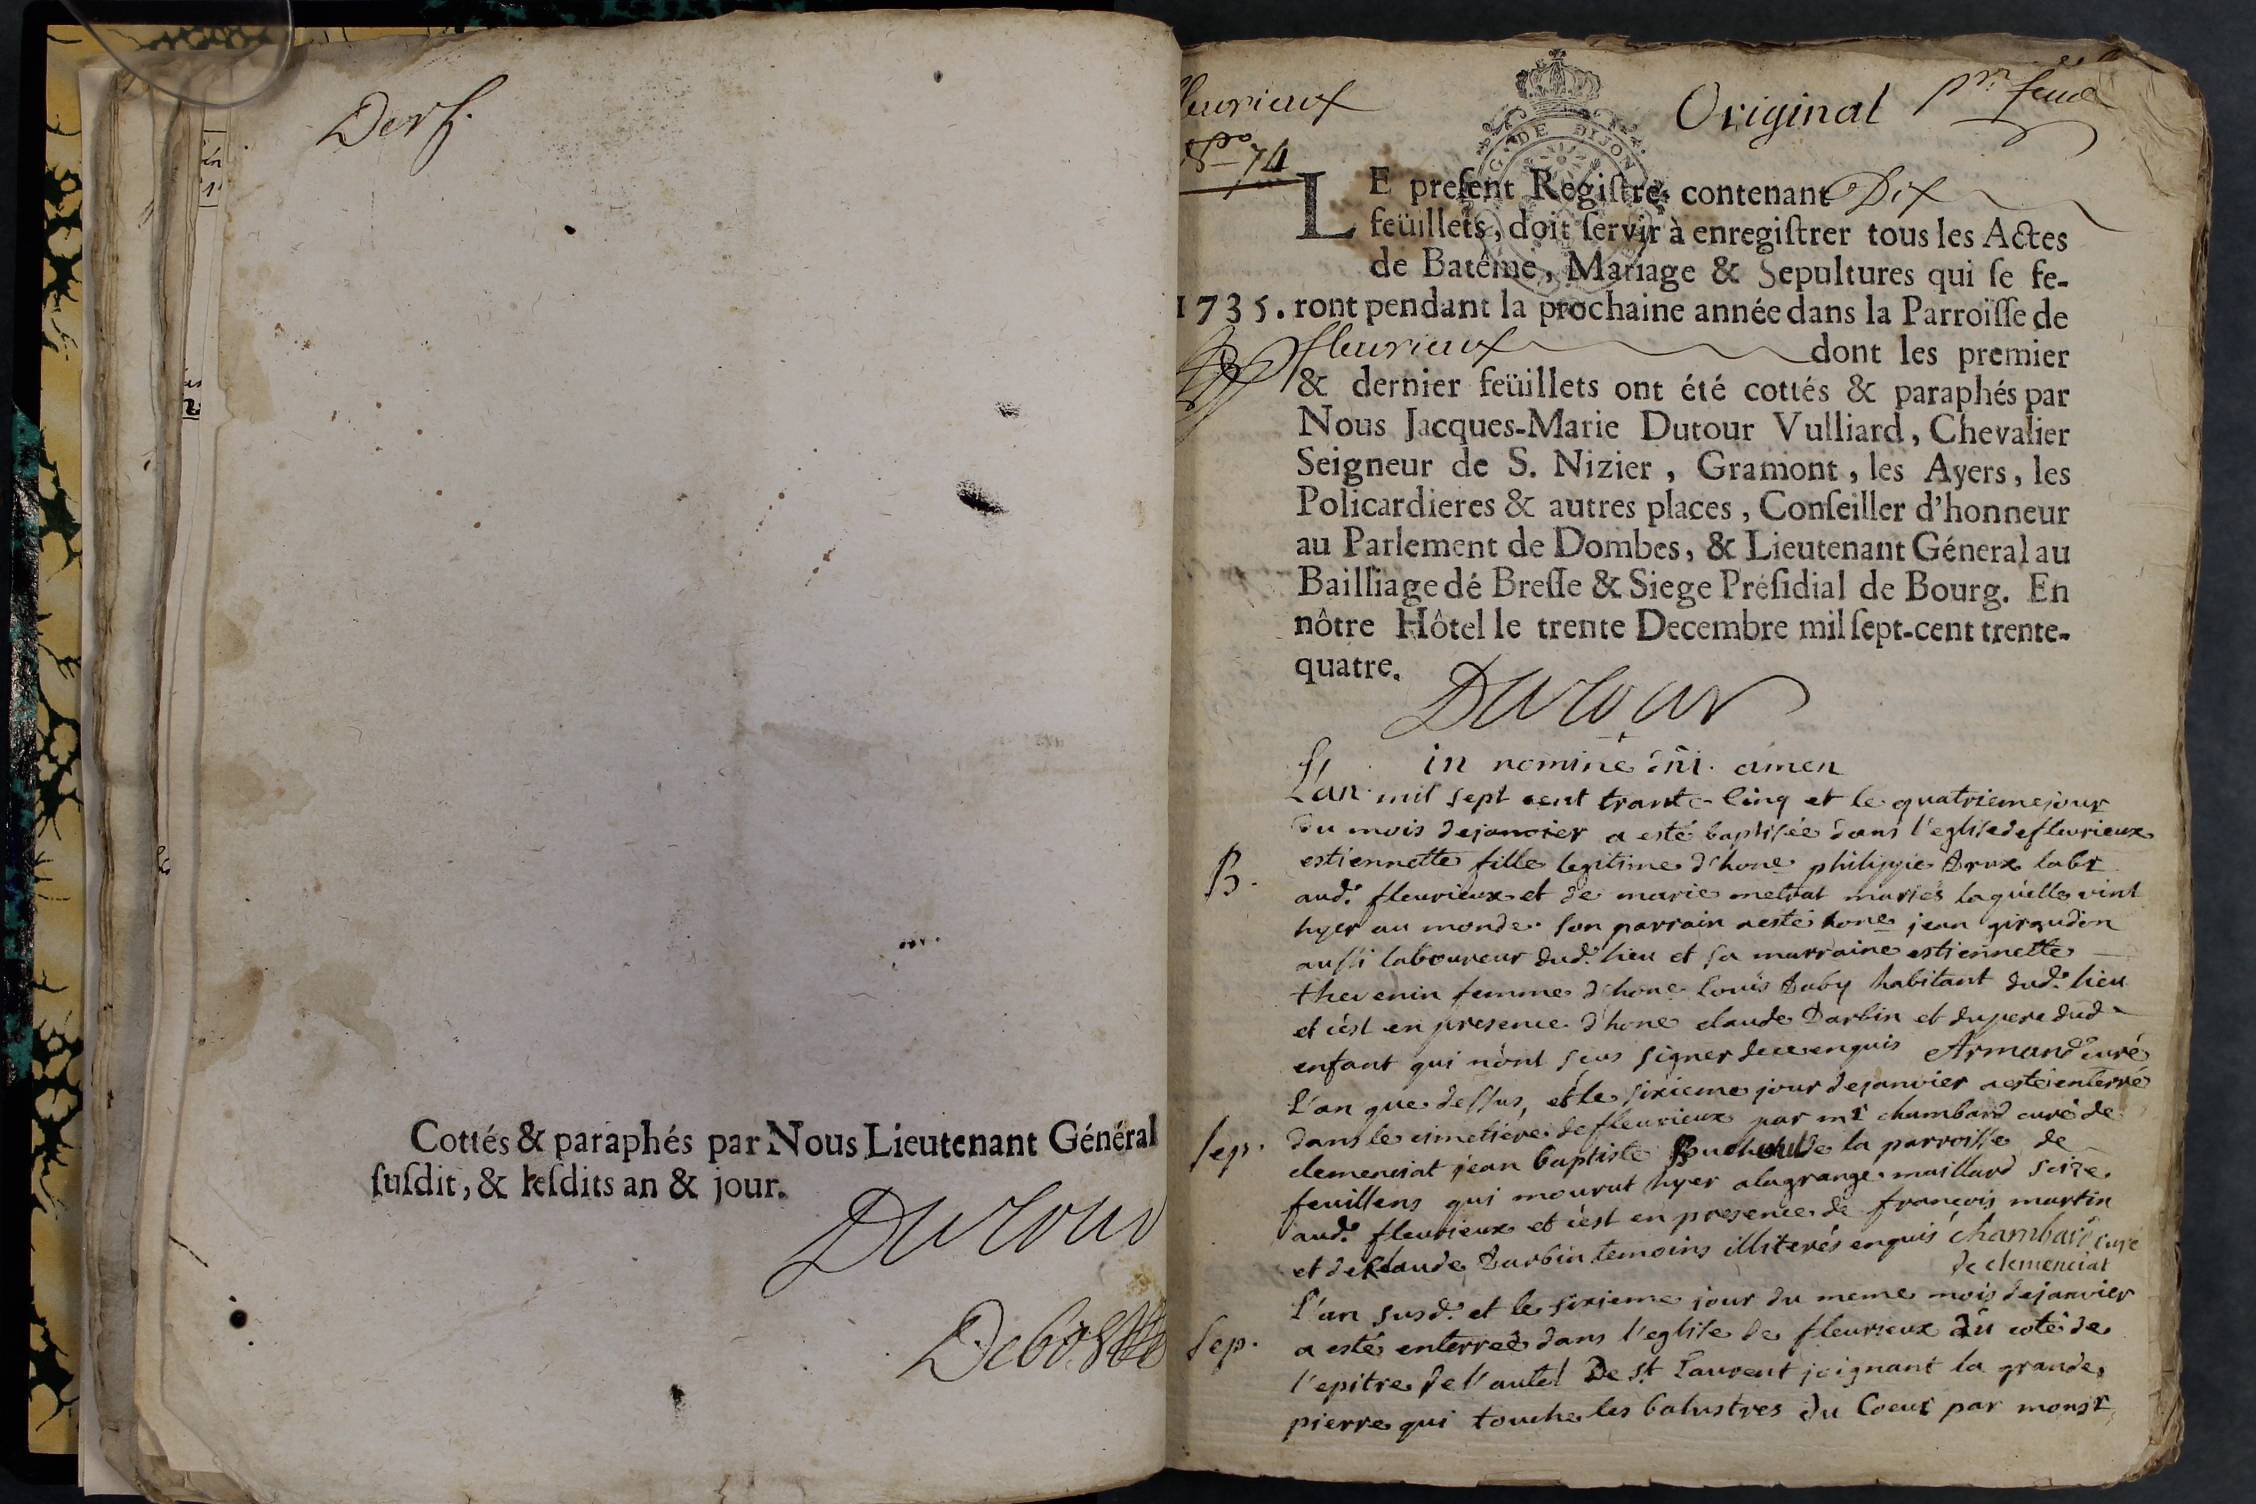 Derf.
Cottés & paraphés par Nous Lieutenant Général
ſuſdit, & leſdits an & jour.
Dutour
fleurieux
Original pr. feuil
G. DE DIJON
LE preſent Regiſtre, contenant Dix
feüillets, doit ſervir à enregiſtrer tous les Actes
de Batême, Mariage & Sepultures qui ſe fe-
1735. ront pendant la prochaine année dans la Parroiſſe de
fleurieux dont les premier
& dernier feüillets ont été cottés & paraphés par
Nous Jacques-Marie Dutour Vulliard, Chevalier
Seigneur de S. Nizier, Gramont, les Ayers, les
Policardieres & autres places, Conſeiller d'honneur
au Parlement de Dombes, & Lieutenant Géneral au
Bailliage dé Breſſe & Siege Préſidial de Bourg. En
nôtre Hôtel le trente Decembre mil ſept-cent trente-
quatre.
Dutour
in nomine dñi. amen
L'an mil sept cent trante cinq et le quatrieme jour
du mois de janvier a esté baptisée dans l'eglise de fleurieux
B. estiennette fille legitime d'hone philippe Brux labr
aud. fleurieux et de marie metrat mariés laquelle vint
hyer au monde son parrain a esté hone jean giraudon
aussi laboureur dud. lieu et sa marraine estiennette
thevenin femme d'hone Louis Duby habitant dud. lieu
et c'est en presence d'hone claude Darbin et du pere dud
enfant qui n'ont sceus signer de ce enquis Armand curé
L'an que dessus, et le sixieme jour de janvier a esté enterré
Sep. dans le cimetiere de fleurieux par mr chambard curé de
clemenciat jean baptiste de la parroisse de
feuillens qui mourut hyer a la grange maillard size
aud. fleurieux et c'est en presence de françois martin
et de Claude Darbin temoins illiterés enquis chambard curé
de clemenciat
L'an susd. et le sixieme jour du meme mois de janvier
Sep. a esté enterreé dans l'eglise de fleurieux du coté de
l'epitre de l'autel De st Laurent joignant la grande
pierre qui touche les balustres du Coeur par monsr